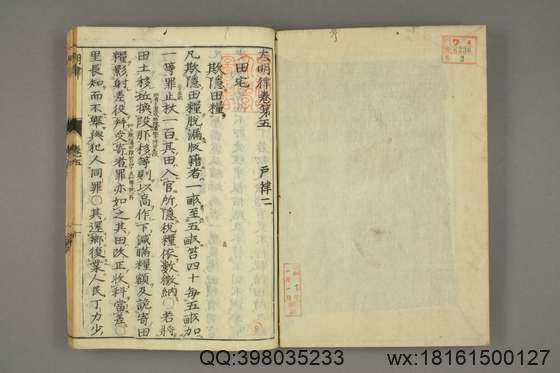 大明律卷第五
戶律二
田宅
欺隱田糧
凡欺隱田糧脫漏版籍者一畝至五畝笞四十每五畝加
一等罪止杖一百其田入官所隱稅糧依數徵納○若將
田土移坵換段那移等則以高作下減瞞糧額及詭寄田
糧影射差役并受寄者罪亦如之其田改正收科當差○
里長知而不舉與犯人同罪○其還鄉復業人民丁力少
QQ:398035233
wx:18161500127